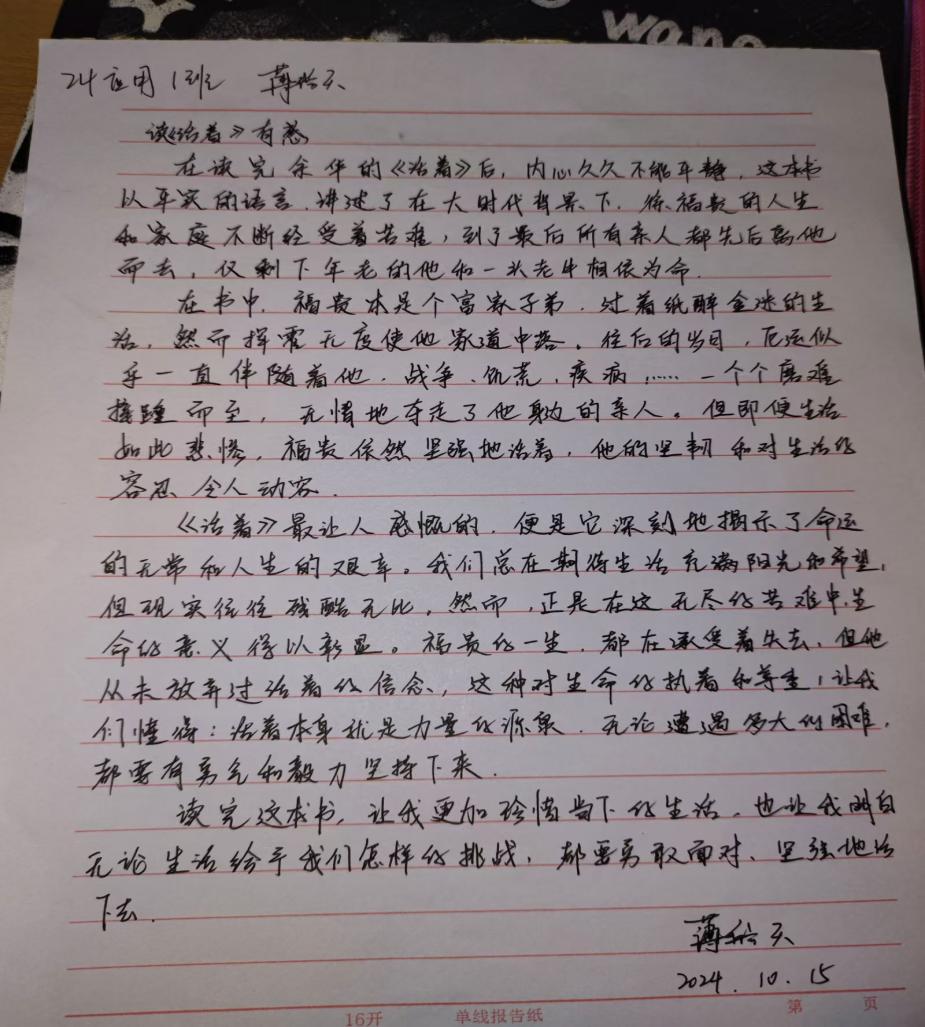 wang
24应用1班 薄 天
读《活着》有感
在读完余华的《活着》后，内心久久不能平静，这本书
以平实的语言，讲述了在大时代背景下，徐福贵的人生
和家庭不断经受着苦难，到了最后所有亲人都先后离他
而去，仅剩下年老的他和一头老牛相依为命.
在书中，福贵本是个富家子弟，过着纸醉金迷的生
活，然而挥霍无度使他家道中落。往后的岁月，厄运似
乎一直伴随着他，战争、饥荒、疾病，……一个个磨难
接踵而至，无情地夺走了他身边的亲人。但即便生活
如此悲惨，福贵依然坚强地活着，他的坚韧和对生活的
容忍令人动容.
《活着》最让人感慨的，便是它深刻地揭示了命运
的无常和人生的艰辛。我们总在期待生活充满阳光和希望，
但现实往往残酷无比，然而，正是在这无尽的苦难中，生
命的意义得以彰显。福贵的一生，都在承受着失去，但他
从未放弃过活着的信念，这种对生命的执着和尊重，让我
们懂得：活着本身就是力量的源泉，无论遭遇多大的困难，
都要有勇气和毅力坚持下来.
读完这本书，让我更加珍惜当下的生活，也让我明白
无论生活给予我们怎样的挑战，都要勇敢面对、坚强地活
下去.
薄 天
2024.10.15
16开 单线报告纸 第 页